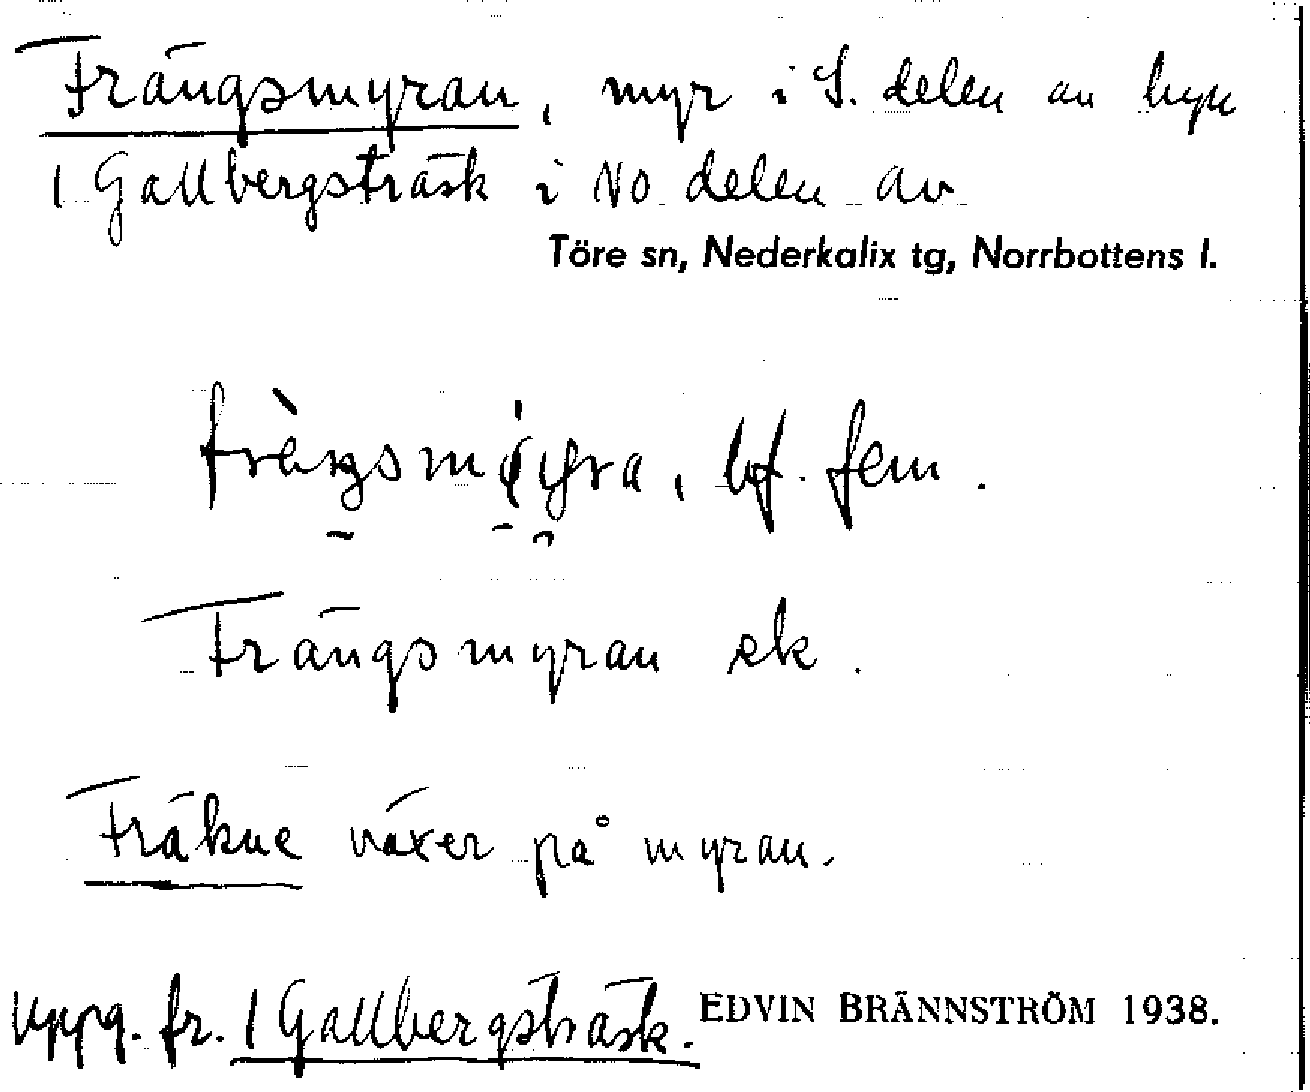 Frängsmyran, myr i S. delen av byn
1 Gallbergsträsk i NO delen av
Töre sn, Nederkalix tg, Norrbottens l.
bf. fem.
Frängsmyran ek.
Fräkne växer på myran.
Uppg. fr. 1 Gallbergsträsk. EDVIN BRÄNNSTRÖM 1938.